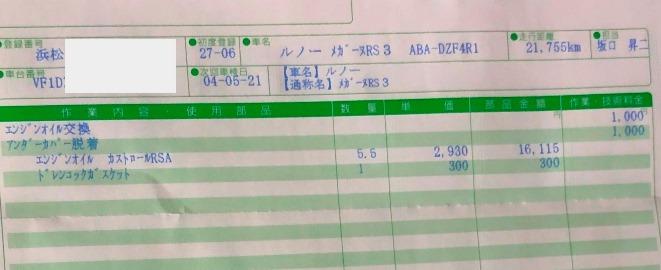 登録番号 初度登録 車名 走行距離 担当
浜松 27-06 ルノー メガーヌRS3 ABA-DZF4R1 21,755km 坂口 昇二
車台番号 次回車検日 【車名】ルノー
VF1D 04-05-21 【通称名】メガーヌRS3
作業内容・使用部品 数量 単価 部品金額 作業・技術料金
エンジンオイル交換 1,000
アンダーカバー脱着 1,000
エンジンオイル カストロールRSA 5.5 2,930 16,115
ドレンコックガスケット 1 300 300